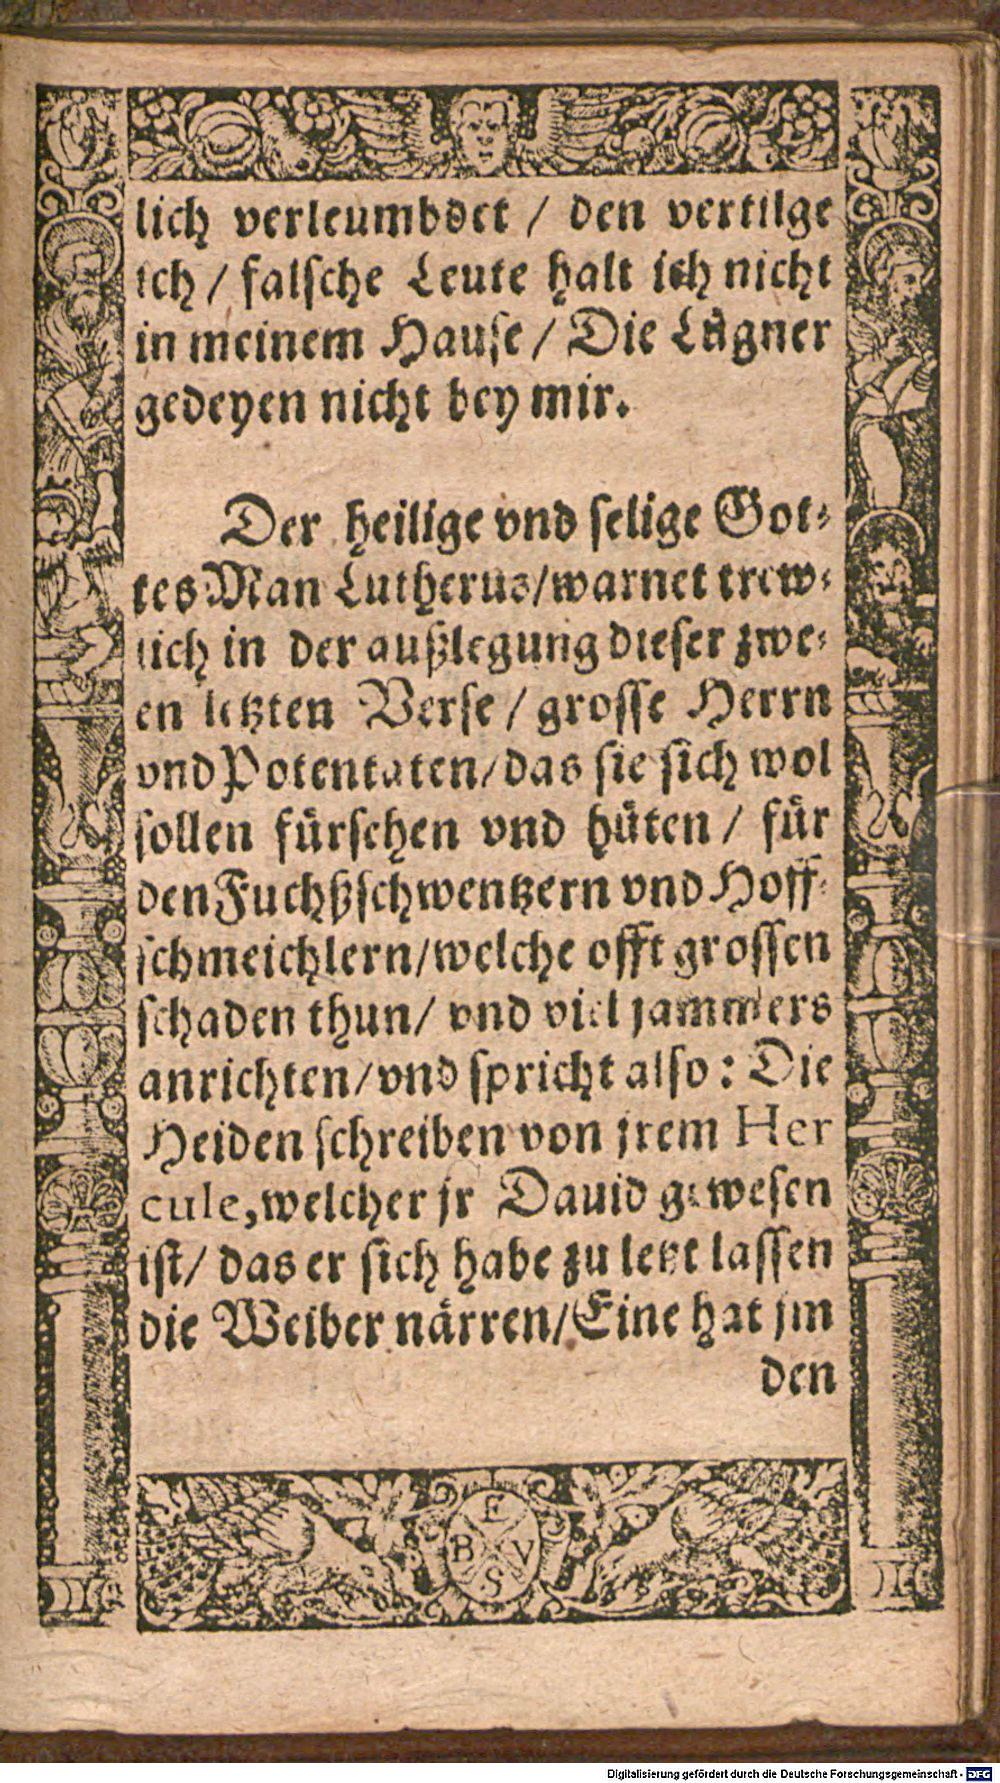 lich verleumbdet / den vertilge
ich / falsche Leute halt ich nicht
in meinem Hause / Die Lügner
gedeyen nicht bey mir.
Der heilige vnd selige Got⸗
tes Man Lutherus/warnet trew⸗
lich in der außlegung dieser zwe⸗
en letzten Verse / grosse Herrn
vnd Potentaten/das sie sich wol
sollen fürsehen vnd hüten / für
den Fuchßschwentzern vnd Hoff⸗
schmeichlern/welche offt grossen
schaden thun/ vnd viel jammers
anrichten/vnd spricht also: Die
Heiden schreiben von jrem Her
cule,welcher jr Dauid gewesen
ist/ das er sich habe zu letzt lassen
die Weiber närren/Eine hat jm
den
E
B V
S
Digitalisierung gefördert durch die Deutsche Forschungsgemeinschaft - DFG